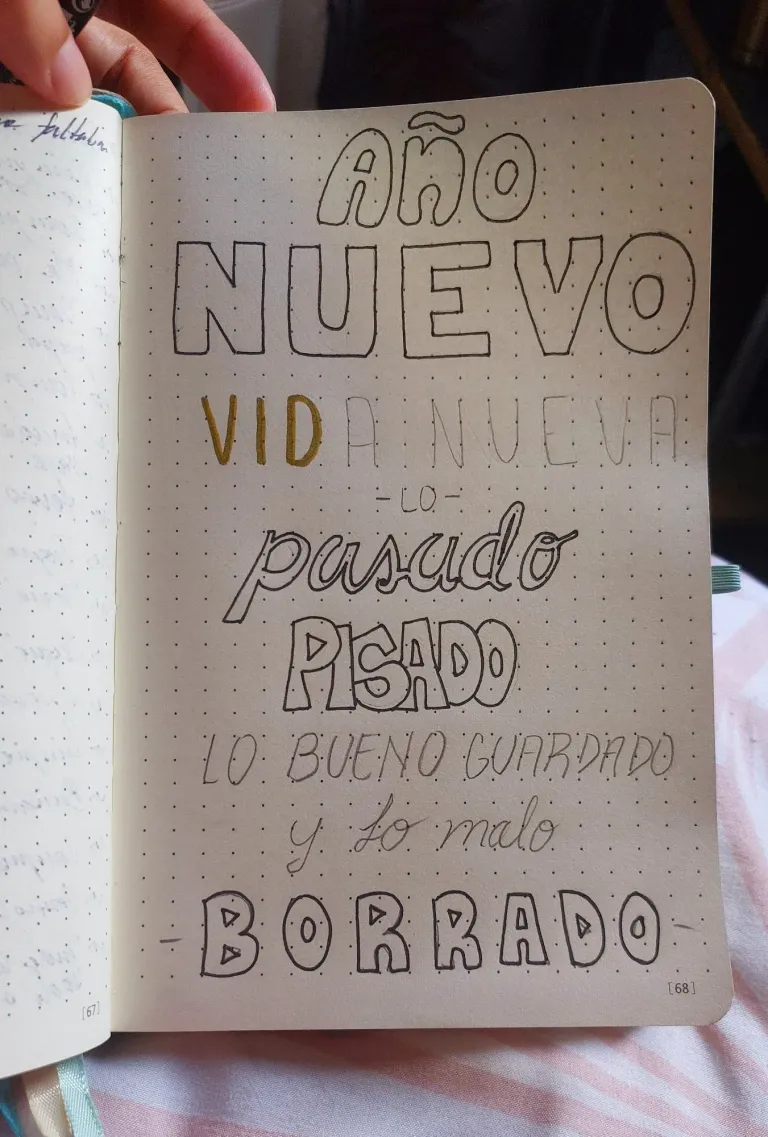 AÑO
NUEVO
VIDA NUEVA
-LO-
pasado
PISADO
LO BUENO GUARDADO
y lo malo
-BORRADO-
[67]
[68]